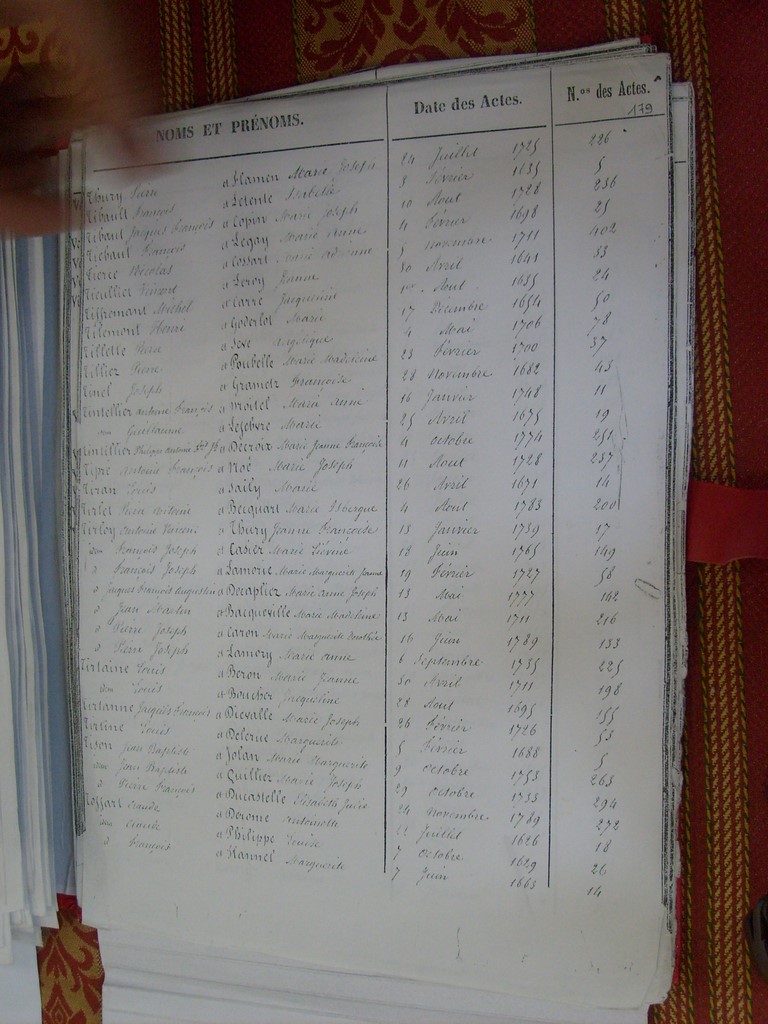 NOMS ET PRÉNOMS. Date des Actes. N.os des Actes.
179
Thury Pierre a Flamen Marie Joseph 24 Juillet 1725 226
Thibault François a Letente Isabelle 3 Février 1635 5
Thibaut Jacques François a Copin Marie Joseph 10 Aout 1728 236
Thiebaut François a Legay Marie Anne 4 Février 1698 25
Tierce Nicolas a Cossart Marie Adrienne 5 novembre 1711 402
Tieullier Vincent a Leroy Jeanne 30 Avril 1641 33
Michel a Carré Jacqueline Aout 1635 24
Tilemont Henri a Goderlot Marie 17 Décembre 1654 50
Tillette a Seve Angélique 4 Mai 1706 78
Tilliez Pierre a Poubelle Marie Madeleine 23 Février 1700 37
Tinel Joseph a Grametz Françoise 28 novembre 1682 45
Tintellier Antoine François a Marie Anne 16 Janvier 1748 11
Guillaume a Lefebvre Marie 25 Avril 1675 19
Tintillier Philippe Antoine a Decroix Marie Jeanne Françoise 4 octobre 1774 251
Tipre Antoine François a Noé Marie Joseph 11 Aout 1728 237
Tiran Louis a Sailly Marie 26 Avril 1671 14
Tirlet a Becquart Marie Isbergue 4 Aout 1783 200
Tirloy Antoine Vincent a Thury Jeanne Françoise 13 Janvier 1739 17
François Joseph a Casier Marie 18 Juin 1765 149
a François Joseph a Lamorie Marie Marguerite Jeanne 19 Février 1727 58
a Jacques François Augustin a Decapliez Marie Anne Joseph 13 Mai 1777 142
a Jean Martin a Bacqueville Marie Madeleine 13 Mai 1711 216
a Pierre Joseph a Caron Marie Marguerite Dorothée 16 Juin 1789 133
a Pierre Joseph a Lamory Marie Anne 6 Septembre 1735 225
Tirtaine Louis a Beron Marie Jeanne 30 Avril 1711 198
Louis a Boucher Jacqueline 28 Aout 1695 155
Tirtanne Jacques François a Dievalle Marie Joseph 26 Février 1726 53
Louis a Delerue Marguerite 5 Février 1688 5
Tison Jean Baptiste a Jolan Marie Marguerite 9 octobre 1753 263
Jean Baptiste a Quillier Marie Joseph 29 octobre 1733 294
a Pierre François a Ducastelle Elisabeth Julie 24 novembre 1789 272
Toffart Claude a Derome Antoinette 22 Juillet 1626 18
Claude a Philippe Louise 7 octobre 1629 26
a François a Hannel Marguerite 7 Juin 1663 14